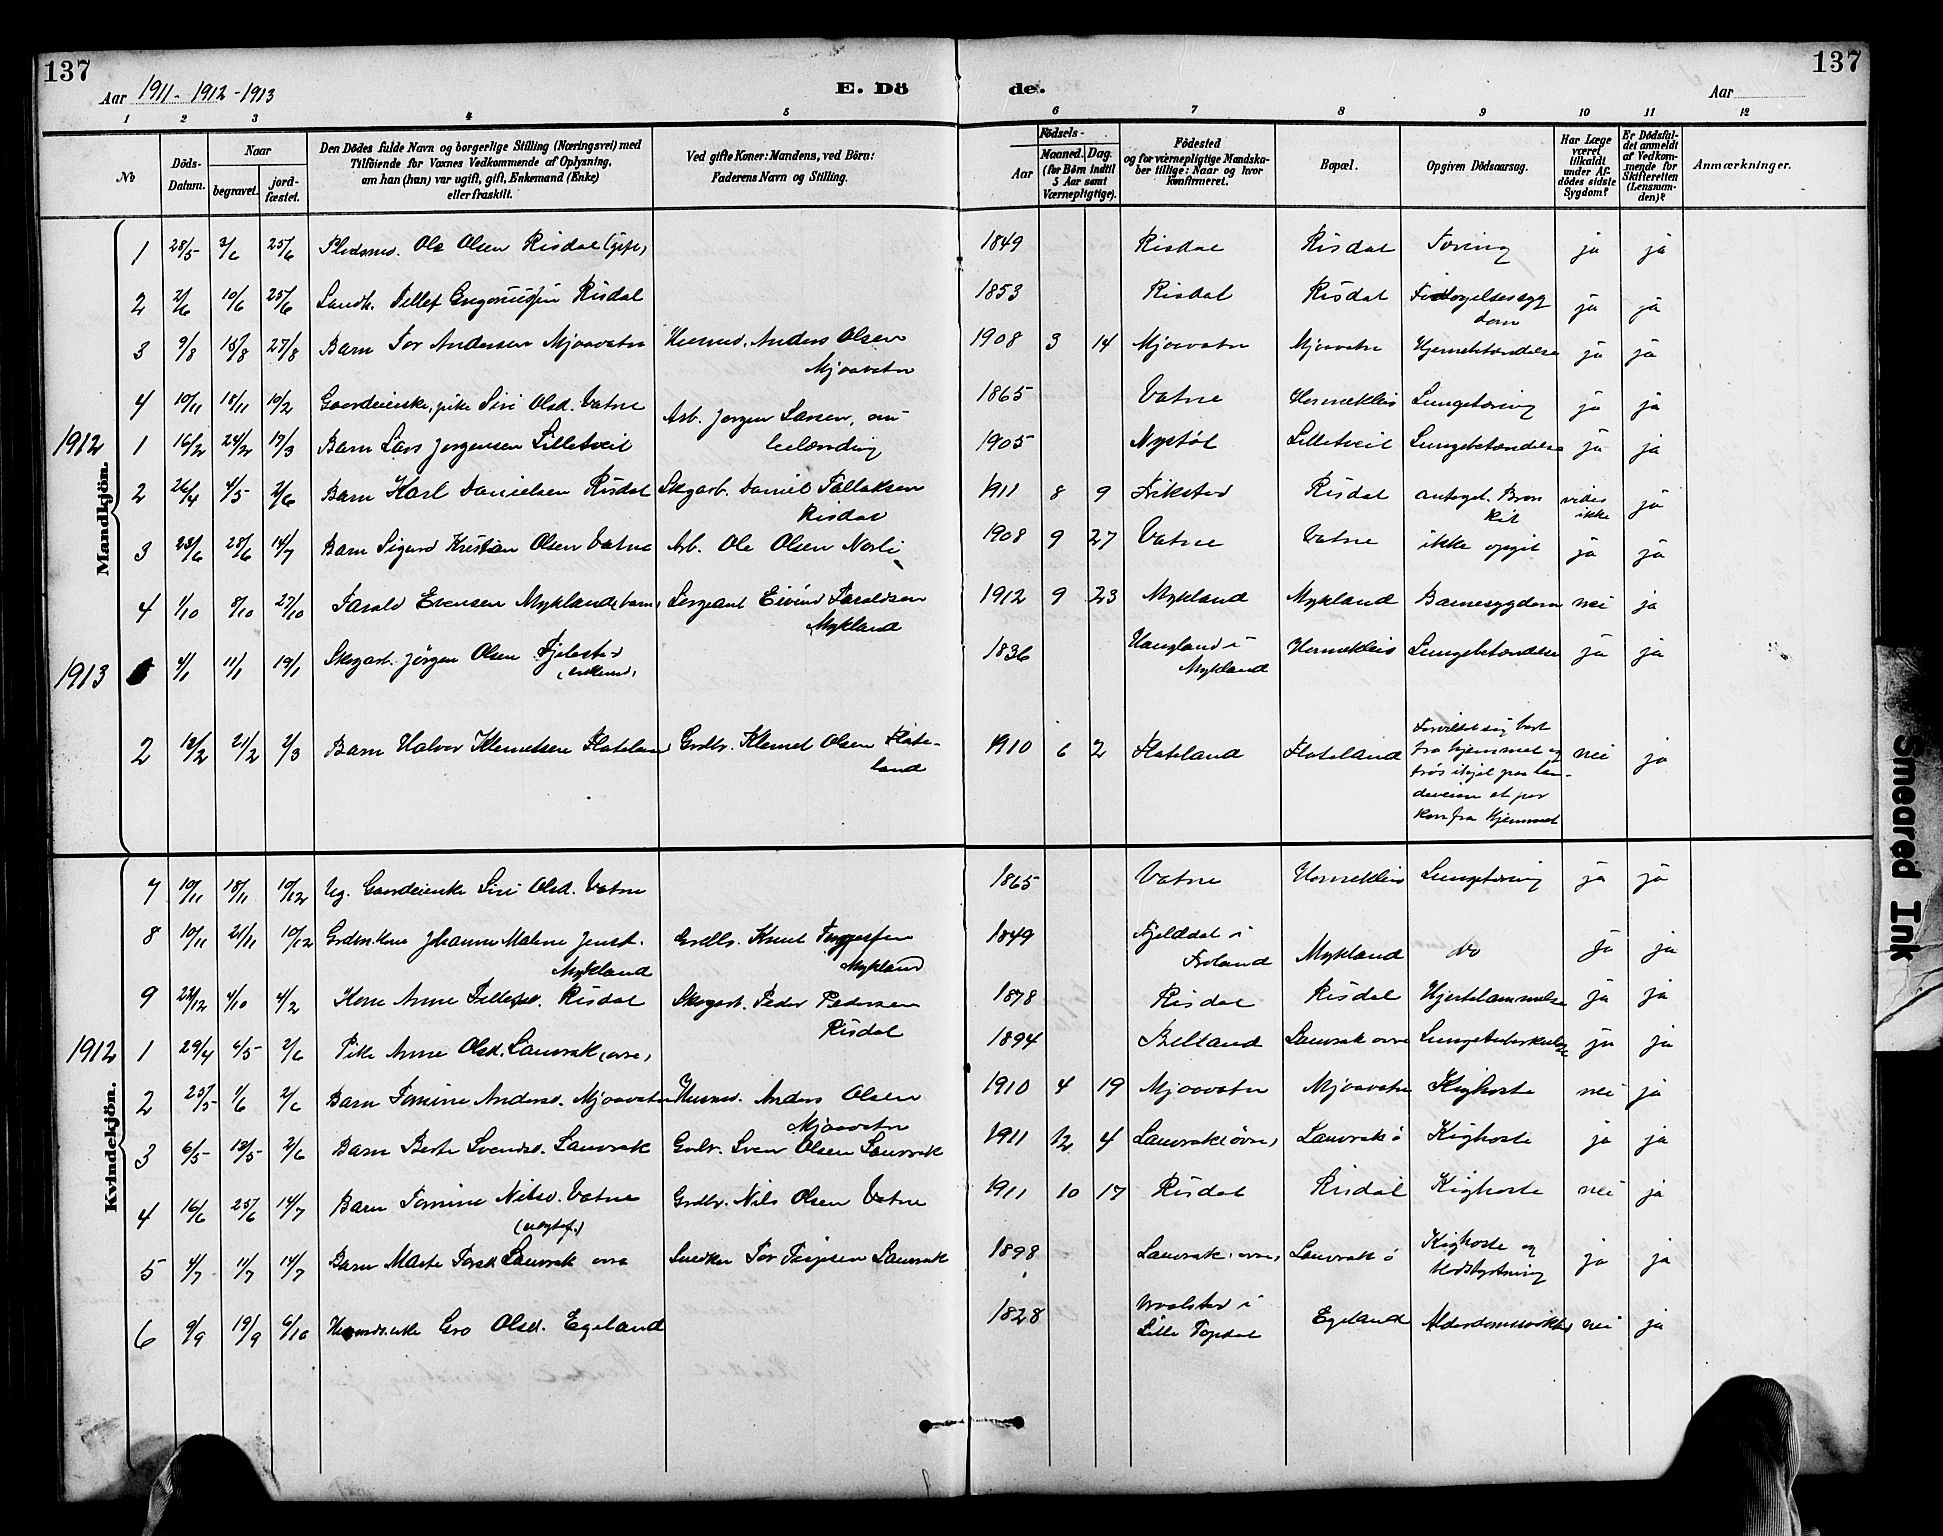 137
137
Aar 1911 - 1912 - 1913
E. Dö
de.
Aar
1 2 3 4 5 6 7 8 9 10 11 12
No
Döds-Datum.
Naar
begravet.
jord-fæstet.
Den Dödes fulde Navn og borgerlige Stilling (Næringsvei) med
Tilföiende for Voxnes Vedkommende af Oplysning,
om han (hun) var ugift, gift, Enkemand (Enke)
eller fraskilt.
Ved gifte Koner: Mandens, ved Börn:
Faderens Navn og Stilling.
Födsels-
Aar
Maaned. Dag.
(for Børn indtil
5 Aar samt
Værnepligtige).
Födested
og for værnepligtige Mandska-
ber tillige: Naar og hvor
konfirmeret.
Bopæl.
Opgiven Dödsaarsag.
Har Læge
været
tilkaldt
under Af-
dödes sidste
Sygdom?
Er Dödsfal-
det anmeldt
af Vedkom-
mende for
Skifteretten
(Lensman-
den)?
Anmærkninger.
Mandkjön.
1 28/5 3/6 25/6 Ole Olsen Risdal (gift) 1849 Risdal Risdal Tæring ja ja
2 2/6 10/6 25/6 Tellef Risdal 1853 Risdal Risdal ja ja
3 9/8 15/8 27/8 Barn Tor Andersen Mjaavatn Husmd. Anders Olsen 1908 3 14 Mjaavatn Mjaavatn Hjernebetændelse ja ja
Mjaavatn
4 10/11 18/11 10/2 Gaardeierske, pike Siri Olsd. Vatne 1865 Vatne Hornekleiv Lungetæring ja ja
1912 1 16/2 24/2 17/3 Barn Lars Jørgensen Lilletveit Arb. Jørgen Larsen, 1905 Nystøl Lilletveit Lungebetændelse ja ja
2 26/4 4/5 2/6 Barn Karl Danielsen Risdal Skogarb. Daniel Tallaksen 1911 8 9 Risdal antagel. Bron ja
Risdal kit vides ikke
3 23/6 28/6 14/7 Barn Sigurd Kristian Olsen Vatne Arb. Ole Olsen Norli 1908 9 27 Vatne Vatne ikke opgit ja ja
4 1/10 8/10 27/10 Tarald Evensen Mykland, barn, Sergeant Eivind Taraldsen 1912 9 23 Mykland Mykland Barnesygdom nei ja
Mykland
1913 4/1 11/1 19/1 Skogarb. Jörgen Olsen 1836 Haugland i Hornekleiv Lungebetændelse ja ja
(enkemd) Mykland
2 12/2 21/2 2/3 Barn Halvor Klemetsen Flateland Grdbr. Klemet Olsen Flate- 1910 6 2 Flateland Flateland nei ja
land
Forvildet sig bort
fra hjemmet og
frös ihjel paa lan-
deveien et par
km fra Hjemmet
Kvindekjön.
7 10/11 18/11 10/12 Ug. Gaardeierske Siri Olsd. Vatne 1865 Vatne Hornekleiv Lungetæring ja ja
8 10/11 21/11 10/12 Johanne Malene Jensd. Grdbr. Knut 1849 i Mykland do ja ja
Mykland Mykland Froland
9 4/10 4/2 Kone Anne Tellefsd. Risdal Skogarb. Peder Pedersen 1878 Risdal Risdal Hjertelammelse ja ja
Risdal
1912 1 29/4 6/5 2/6 Pike Anne Olsd. Lauvrak, øvre, 1894 Belland Lauvrak øvre Lungetuberkulose ja ja
2 25/5 1/6 2/6 Barn Tomine Andersd. Mjaavatn Husmd. Anders Olsen 1910 4 19 Mjaavatn Mjaavatn Kighoste nei ja
Mjaavatn
3 6/5 12/5 2/6 Barn Berte Svendsd. Lauvrak Grdbr. Sven Olsen Lauvrak 1911 12 4 Lauvrak (øvre) Lauvrak ø Kighoste ja ja
4 16/6 25/6 14/7 Barn Tomine Nilsd. Vatne Grdbr. Nils Olsen Vatne 1911 10 17 Risdal Risdal Kighoste nei ja
5 4/7 11/7 14/7 Barn Marte Torsd. Lauvrak øvre Snedker Tor Lauvrak 1898 Lauvrak, øvre, Lauvrak ø Kighoste og ja ja
6 9/9 19/9 6/10 Gro Olsd. Egeland 1828 i Egeland nei ja
Lille Topdal
Smeared Ink